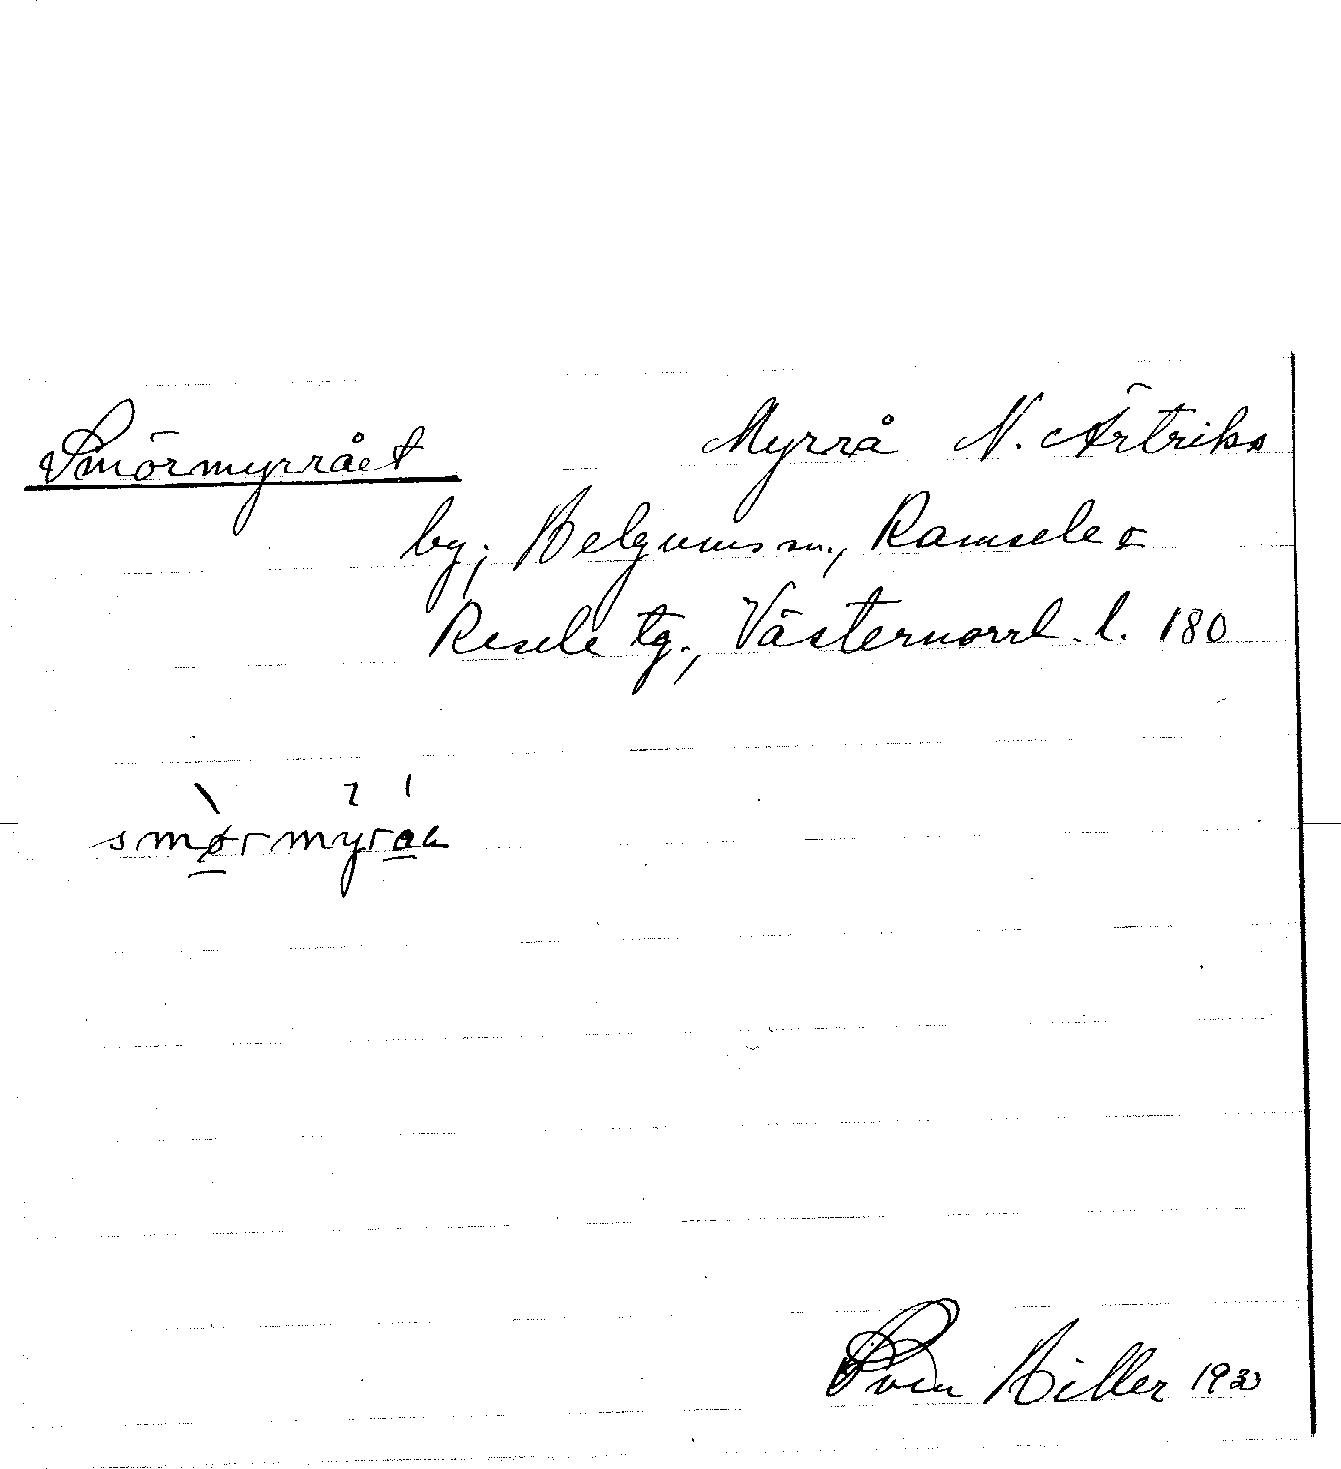 Smörmyrrået Myrrå N. Ärtriks
by, Helgums sn., Ramsele o
Resele tg., Västernorrl. l. 180
smørmyråa
Sven Hiller 1933